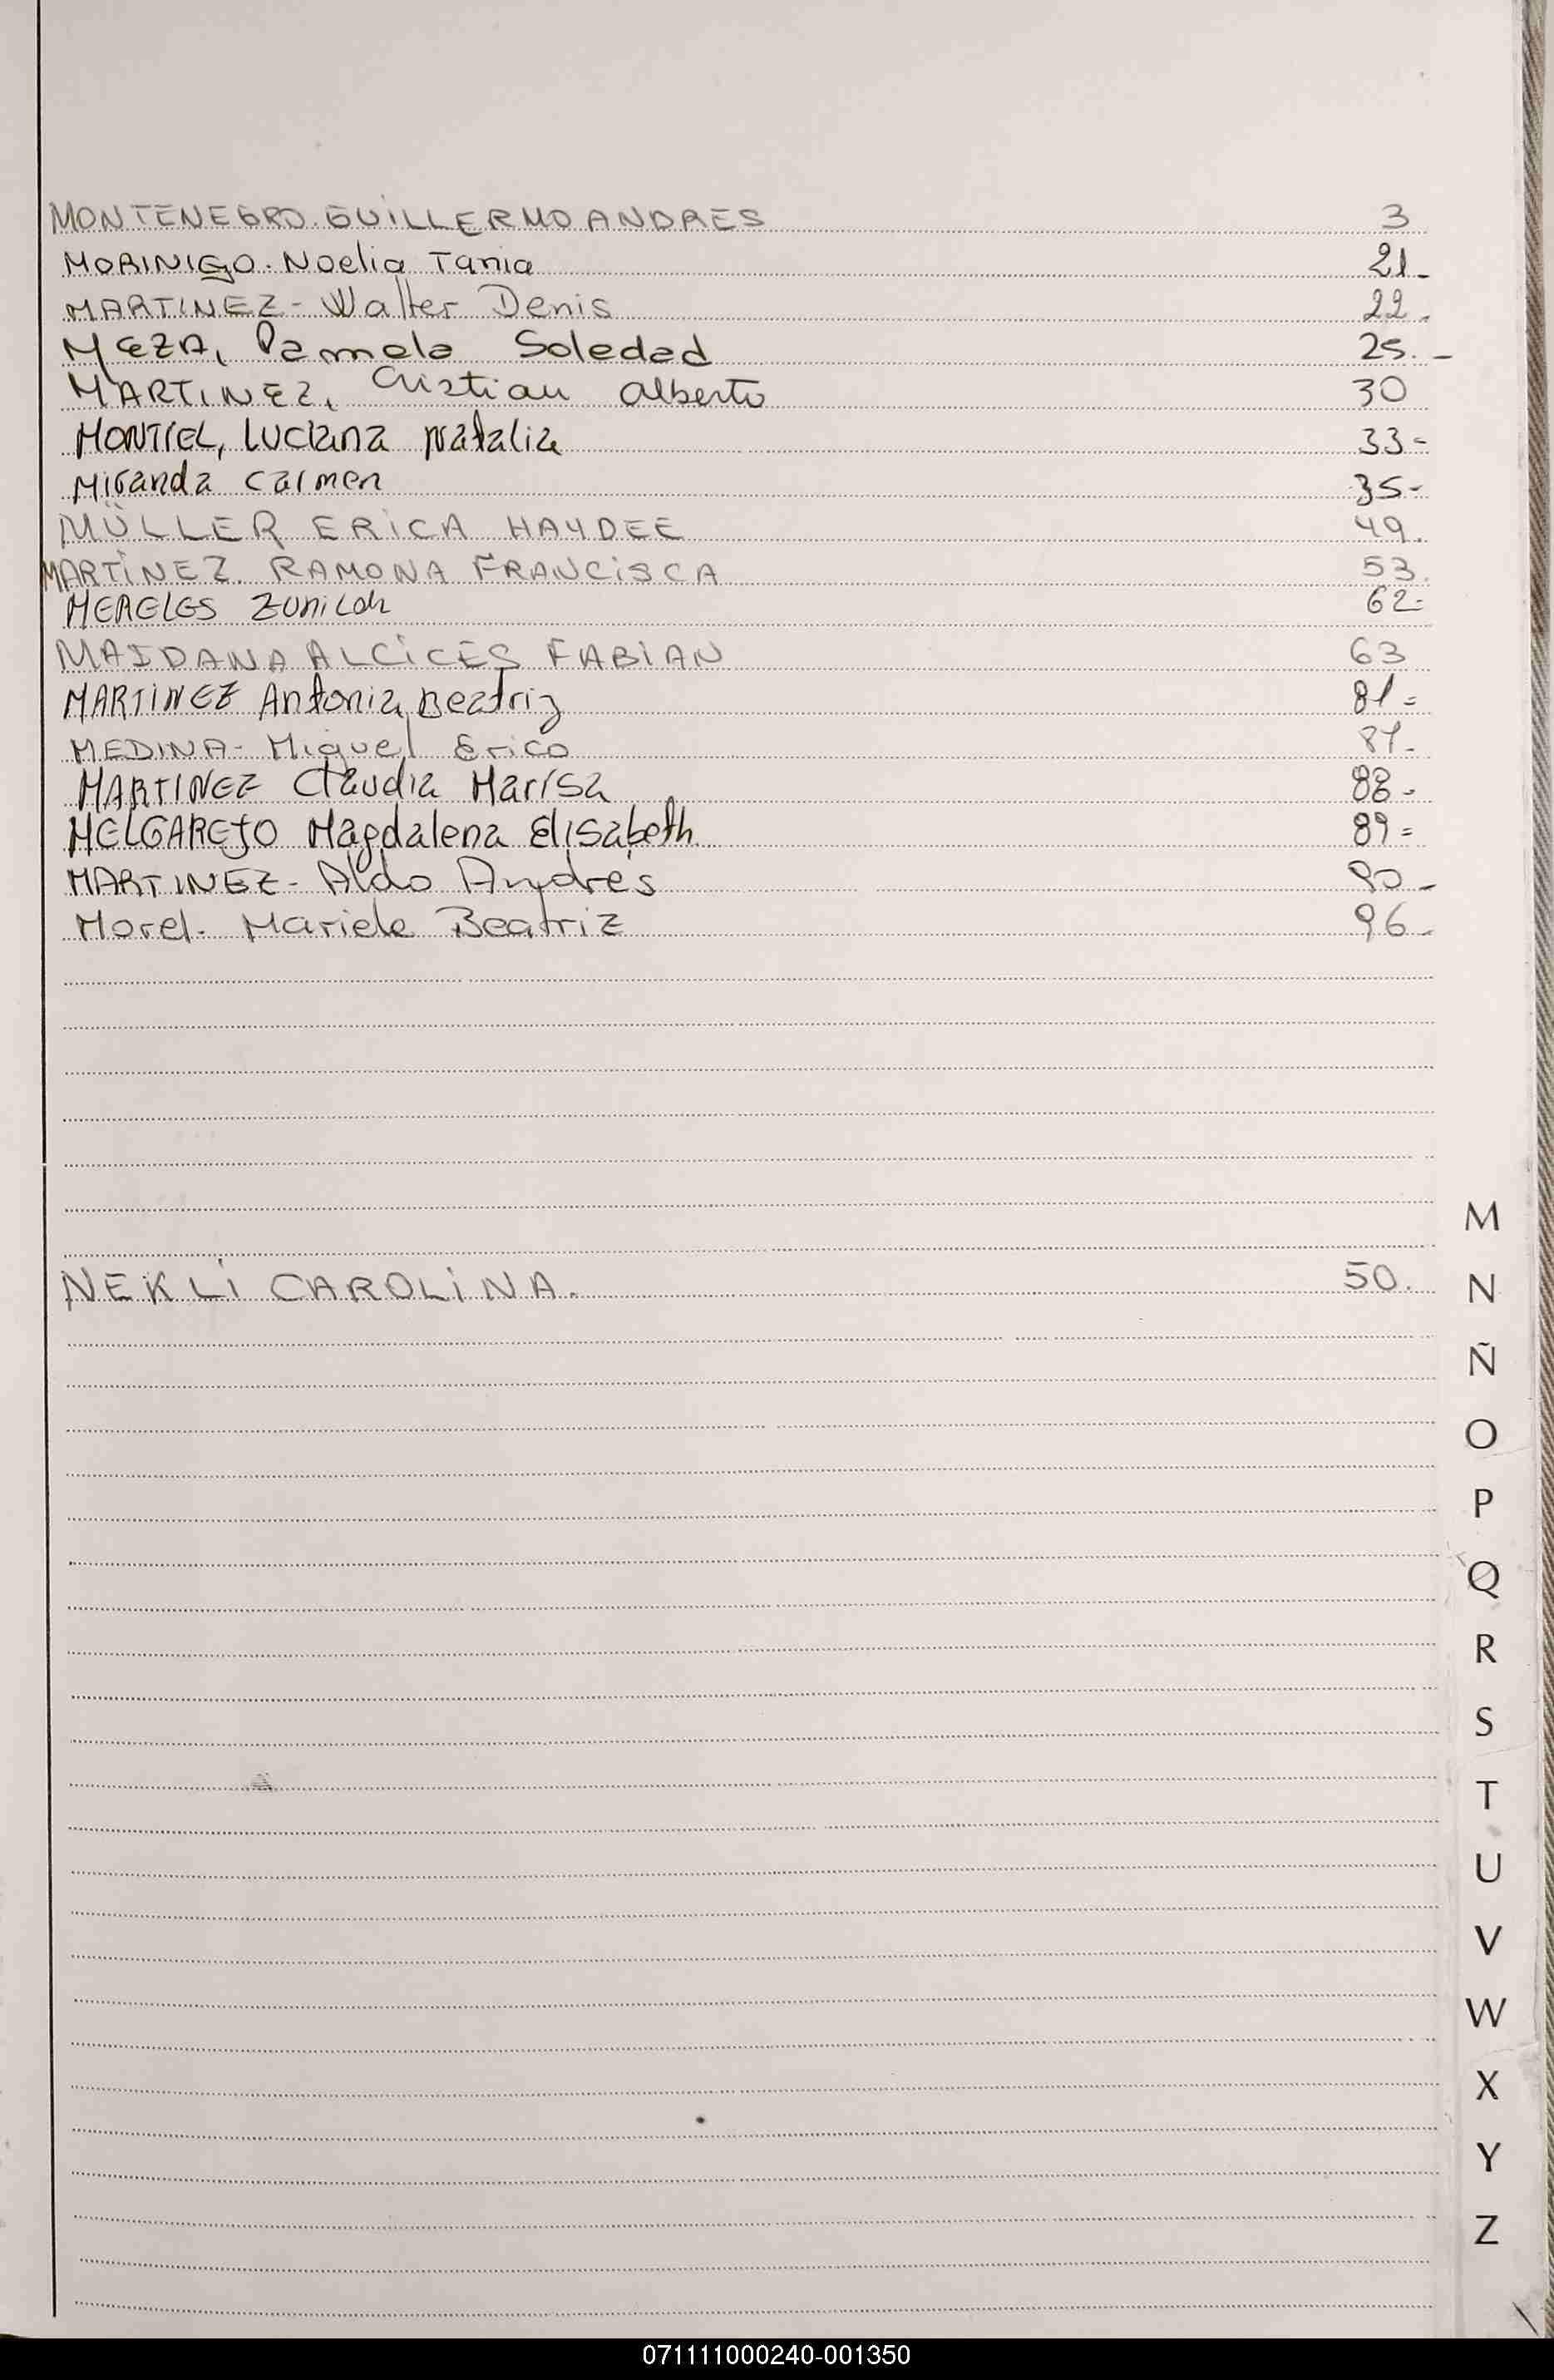 MONTENEGRO. GUILLERMO ANDRES 3
MORINIGO. Noelia Tania 21-
MARTINEZ - Walter Denis 22.
MEZA, Pamela Soledad 25.-
MARTINEZ, Cristian Alberto 30
MONTIEL, Luciana Natalia 33-
Miranda Carmen 35-
MÜLLER ERICA HAYDEE 49.
MARTINEZ. RAMONA FRANCISCA 53.
MERELES Zunilda 62-
MAIDANA ALCICES FABIAN 63
MARTINEZ Antonia Beatriz 81=
MEDINA - Miguel Erico 87-
MARTINEZ Claudia Marisa 88-
MELGAREJO Magdalena Elisabeth 89=
MARTINEZ - Aldo Andres 90-
Morel. Mariela Beatriz 96-
M
NEKLI CAROLINA. 50.
N
Ñ
O
P
Q
R
S
T
U
V
W
X
Y
Z
071111000240-001350